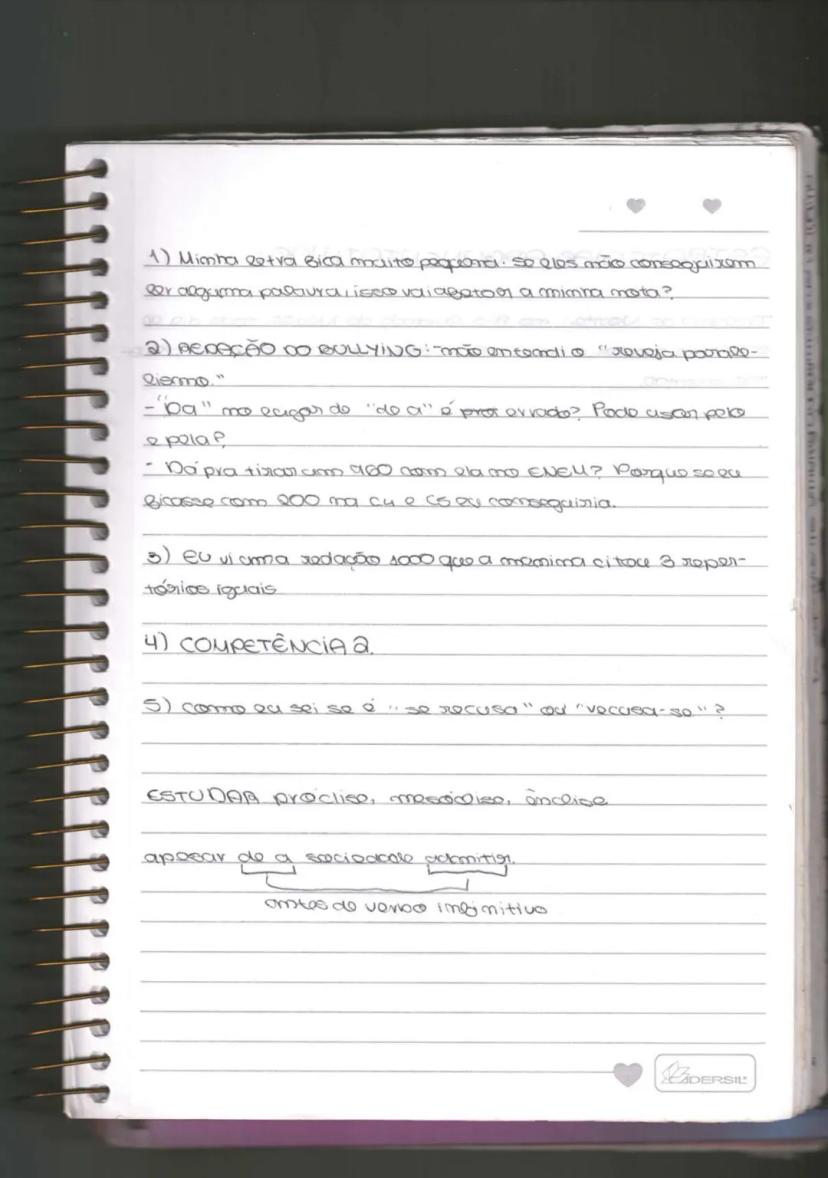 1) Minha letra fica muito pequena. se eles não conseguirem
ler alguma palavra, isso vai afetar a minha nota?
2) REDAÇÃO DO BULLYING: -não entendi o "reveja parale-
lismo."
-"Da" no lugar de "de a" é errado? Pode usar pelo
e pela?
- Dá pra tirar um 960 com ela no ENEM? Porque se eu
ficasse com 200 na C4 e C5 eu conseguiria.
3) eu vi uma redação 1000 que a menina citou 3 reper-
tórios iguais
4) COMPETÊNCIA 2.
5) como eu sei se é "se recusa" ou "recusa-se"?
ESTUDAR próclise, mesóclise, ênclise
apesar de a sociedade admitir.
antes de verbo infinitivo
ADERSIL